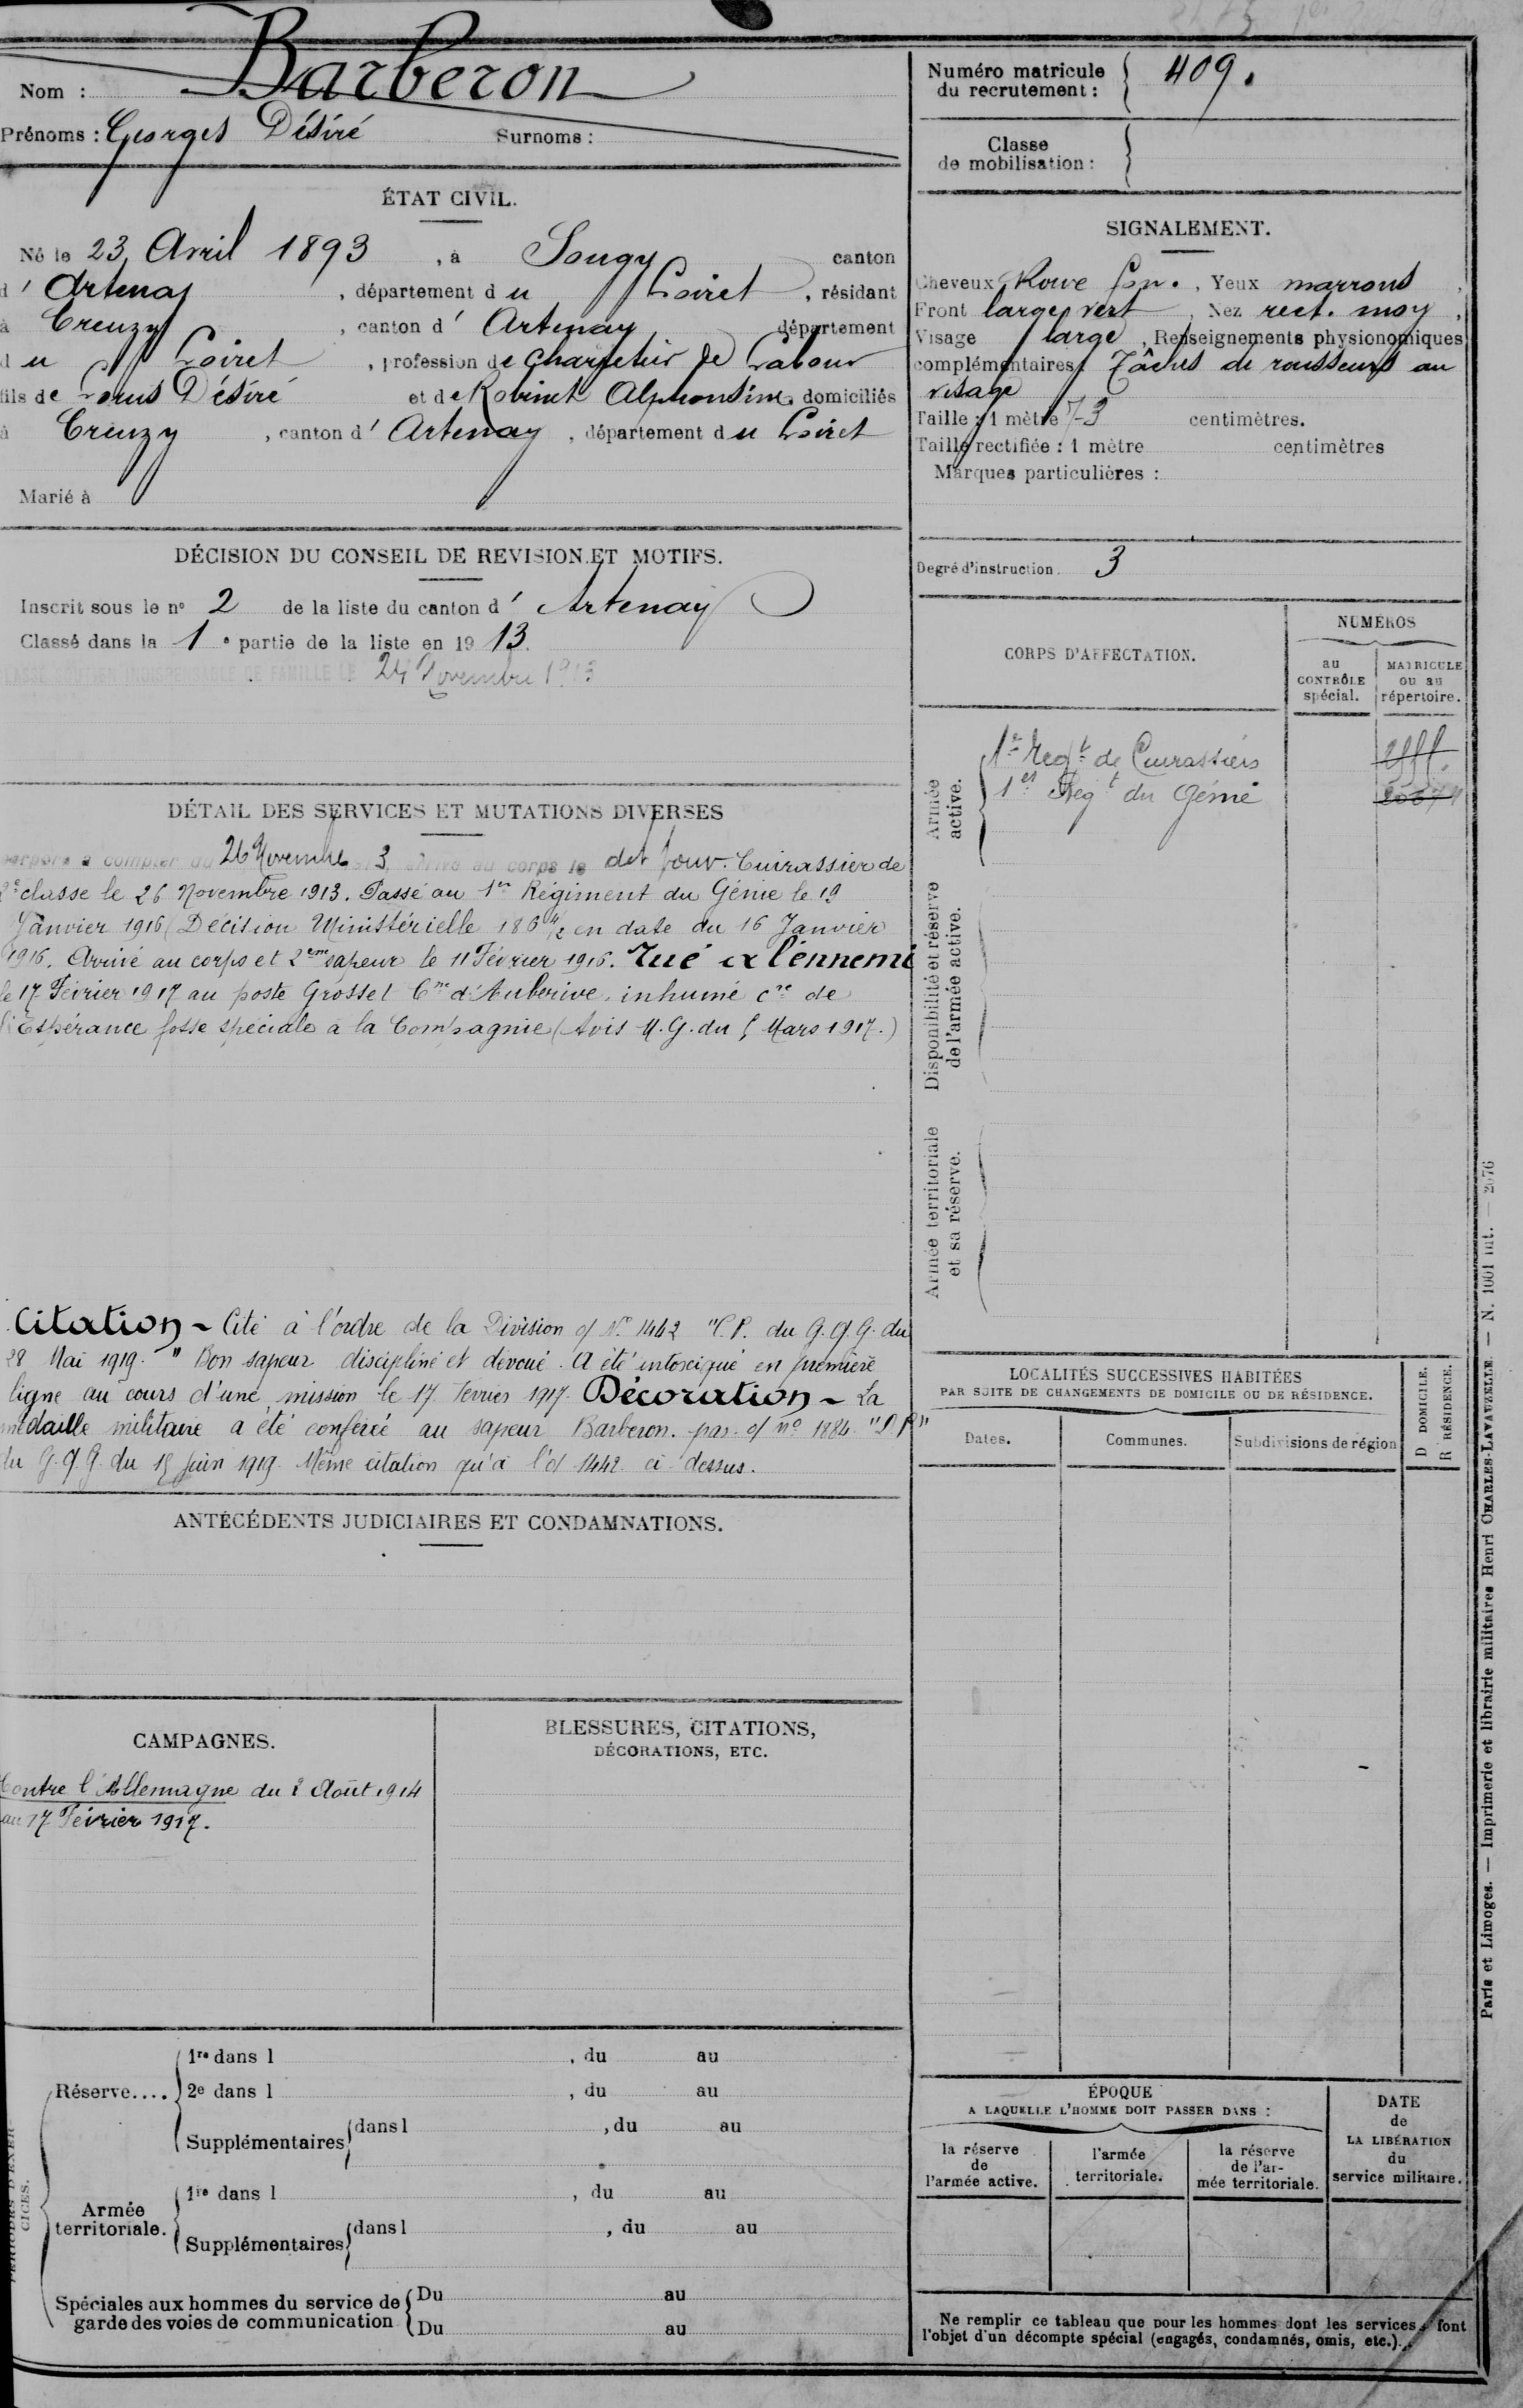 Nom : Barberon
Prénoms : Georges Désiré Surnoms :
ÉTAT CIVIL.
Né le 23 Avril 1893, à Sougy canton
d'Artenay, département du Loiret, résidant
à Creuzy, canton d'Artenay département
du Loiret, profession de charretier de Labour
fils de Louis Désiré et de Robinet Alphonsine domiciliés
à Creuzy, canton d'Artenay, département du Loiret
Marié à
DÉCISION DU CONSEIL DE REVISION ET MOTIFS.
Inscrit sous le n° 2 de la liste du canton d'Artenay
Classé dans la 1e partie de la liste en 1913.
CLASSÉ SOUTIEN INDISPENSABLE DE FAMILLE LE 24 Novembre 1913
DÉTAIL DES SERVICES ET MUTATIONS DIVERSES
à compter du 26 Novembre 3 arrivé au corps le dit jour. Cuirassier de
2e classe le 26 Novembre 1913. Passé au 1er Régiment du Génie le 19
Janvier 1916 (Décision Ministérielle 186 4/2 en date du 16 Janvier
1916. Arrivé au corps et 2eme sapeur le 11 Février 1916. Tué à l'ennemi
le 17 Février 1917 au poste Grosset Cne d'Auberive, inhumé cre de
l'Espérance fosse spéciale à la Compagnie (Avis M.G. du 5 Mars 1917.)
Citation - Cité à l'ordre de la Division o/ N° 1442 "C.P. du G.Q.G. du
28 Mai 1919. " Bon sapeur discipliné et dévoué. A été intoxiqué en première
ligne au cours d'une mission le 17 Février 1917. Décoration - La
médaille militaire a été conférée au sapeur Barberon. par o/ n° 1884 "D.P"
du G.Q.G. du 15 Juin 1919. Même citation qu'à l'o/ 1442 ci-dessus.
ANTÉCÉDENTS JUDICIAIRES ET CONDAMNATIONS.
CAMPAGNES.
Contre l'Allemagne du 2 Août 1914
au 17 Février 1917.
BLESSURES, CITATIONS,
DÉCORATIONS, ETC.
PÉRIODES D'EXER-
CICES.
Réserve....
1re dans l , du au
2e dans l , du au
Supplémentaires dans l , du au
Armée
territoriale.
1re dans l , du au
Supplémentaires dans l , du au
Spéciales aux hommes du service de
garde des voies de communication
Du au
Du au
Numéro matricule
du recrutement : 409.
Classe
de mobilisation :
SIGNALEMENT.
Cheveux Roux fon., Yeux marrons,
Front large vert, Nez rect. moy,
Visage large, Renseignements physionomiques
complémentaires : Tâches de rousseurs au
visage
Taille : 1 mètre 73 centimètres.
Taille rectifiée : 1 mètre centimètres
Marques particulières :
Degré d'instruction. 3
CORPS D'AFFECTATION.
NUMÉROS
au
CONTRÔLE
spécial.
MATRICULE
ou au
répertoire.
Armée
active.
1er Régt de Cuirassiers
1er Régt du Génie
Disponibilité et réserve
de l'armée active.
Armée territoriale
et sa réserve.
LOCALITÉS SUCCESSIVES HABITÉES
PAR SUITE DE CHANGEMENTS DE DOMICILE OU DE RÉSIDENCE.
Dates.
Communes.
Subdivisions de région
D DOMICILE.
R RÉSIDENCE.
ÉPOQUE
A LAQUELLE L'HOMME DOIT PASSER DANS :
la réserve
de
l'armée active.
l'armée
territoriale.
la réserve
de l'ar-
mée territoriale.
DATE
de
LA LIBÉRATION
du
service militaire.
Ne remplir ce tableau que pour les hommes dont les services font
l'objet d'un décompte spécial (engagés, condamnés, omis, etc.).
Paris et Limoges. — Imprimerie et librairie militaires Henri CHARLES-LAVAUZELLE. — N. 1001 int. — 2076